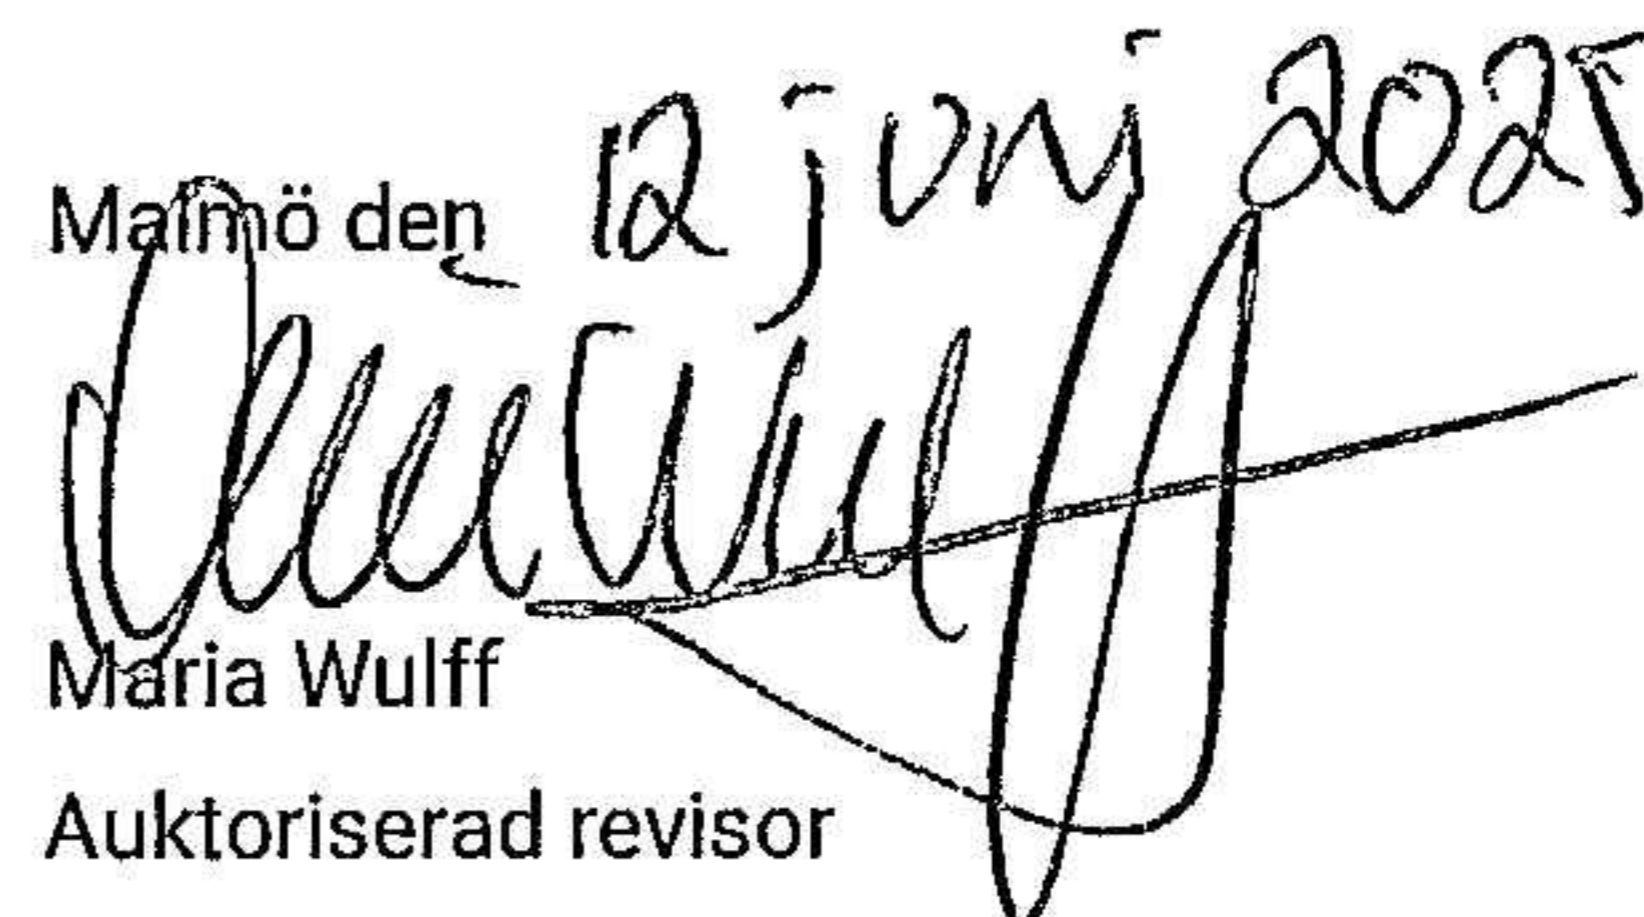 Malmö den 12 juni 2025
Maria Wulff
Auktoriserad revisor